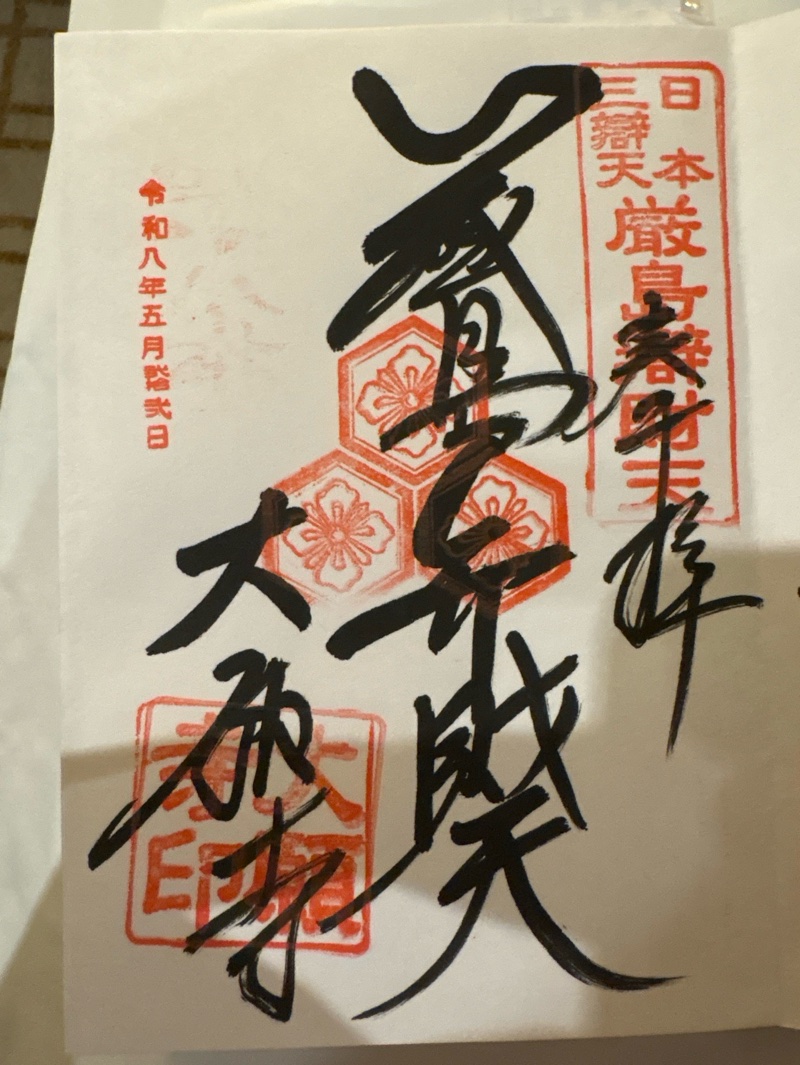 日本
三辯天
厳島辯財天
奉拝
厳島弁財天
大願寺
大願
寺印
令和八年五月弐日